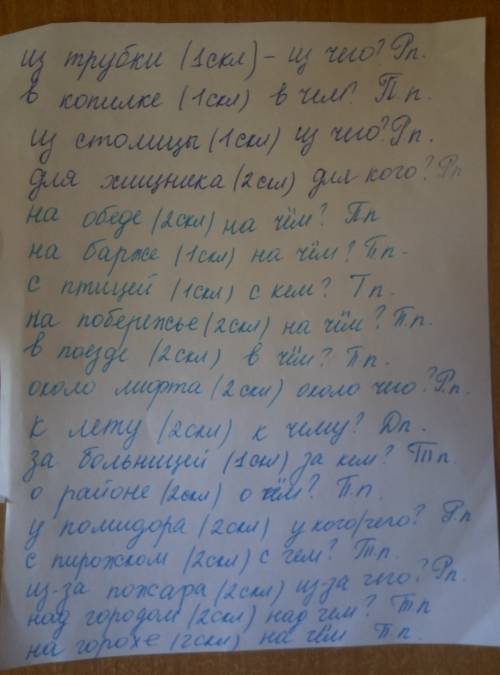 из трубки (1скл) - из чего? Рп.
в копилке (1скл) в чем? П.п.
из столицы (1скл) из чего? Рп.
для хищника (2скл) для кого? Рп
на обеде (2скл) на чём? Пп
на барже (1скл) на чём? Пп.
с птицей (1скл) с кем? Тп.
на побережье (2скл) на чём? П.п.
в поезде (2скл) в чём? Пп.
около лифта (2скл) около чего? Р.п.
к лету (2скл) к чему? Дп.
за больницей (1скл) за кем? Тп.
о районе (2скл) о чём? П.п.
у помидора (2скл) у кого/чего? Р.п
с пирожком (2скл) с чем? Т.п.
из-за пожара (2скл) из-за чего? Рп.
над городом (2скл) над чем? Тп
на горохе (2скл) на чём П.п.